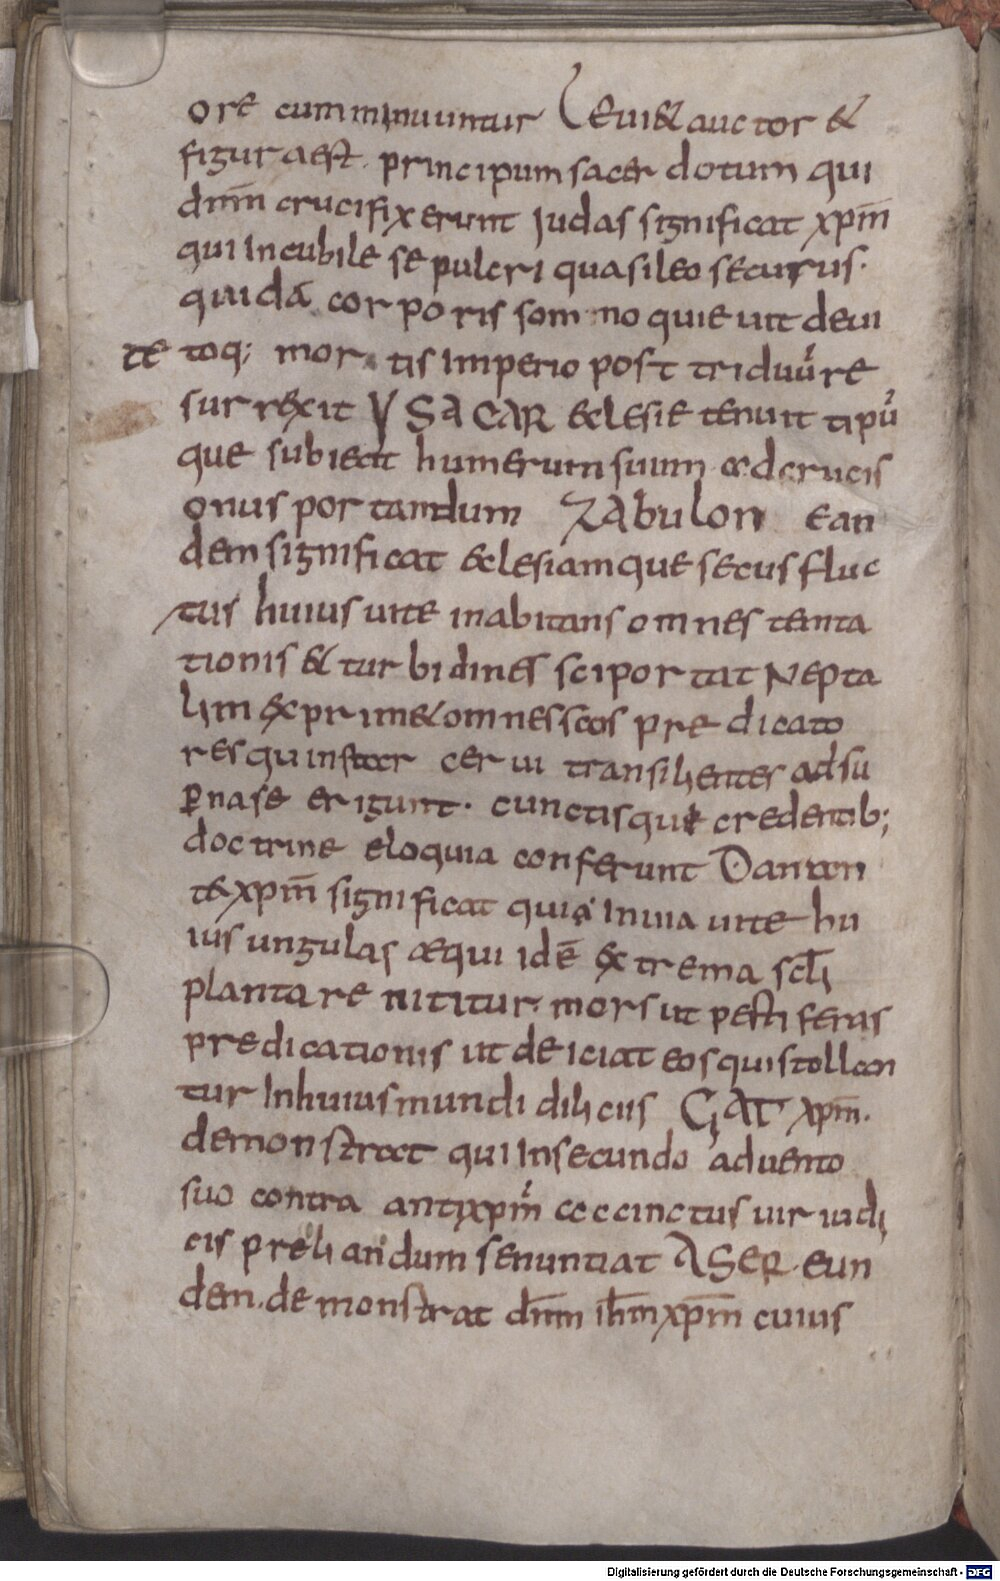 ore cumminuuntur Leui& auctor &
figura est. principum sacerdotum qui
dn̄m crucifixerunt Judas significat xp̄m
qui in cubile sepulcri quasi leo securus.
quidā corporis somno quieuit deui
te toq; mortis imperio post triduū re
surrexit VSACAR eclesie tenuit tipū
que subiecit humerum suum ad crucis
onus portandum ZAbulon Ean
dem significat eclesiam que secus fluc
tus huius uite inabitans omnes temta
tionis & turbidines sci portat Nepta
lim exprim& omnes sc̄os predicato
res qui instar cerui transilientes ad su
ꝑna se erigunt. cunctisque credentib;
doctrine eloquia conferunt Dan ton
te xp̄m significat quia in uia uite hu
ius ungulas æqui idē extrema scl̄i
plantare nititur. mors ut pestiferas
predicationis ut deiciat eos qui stollon
tur in huius mundi diliciis GAT xp̄m.
demonstrat qui in secundo aduento
suo contra antixpm̄ accinctus uir iudi
cis preliandum se nuntiat ASER. eun
dem. demonstrat dn̄m ih̄m xp̄m cuius
Digitalisierung gefördert durch die Deutsche Forschungsgemeinschaft - DFG